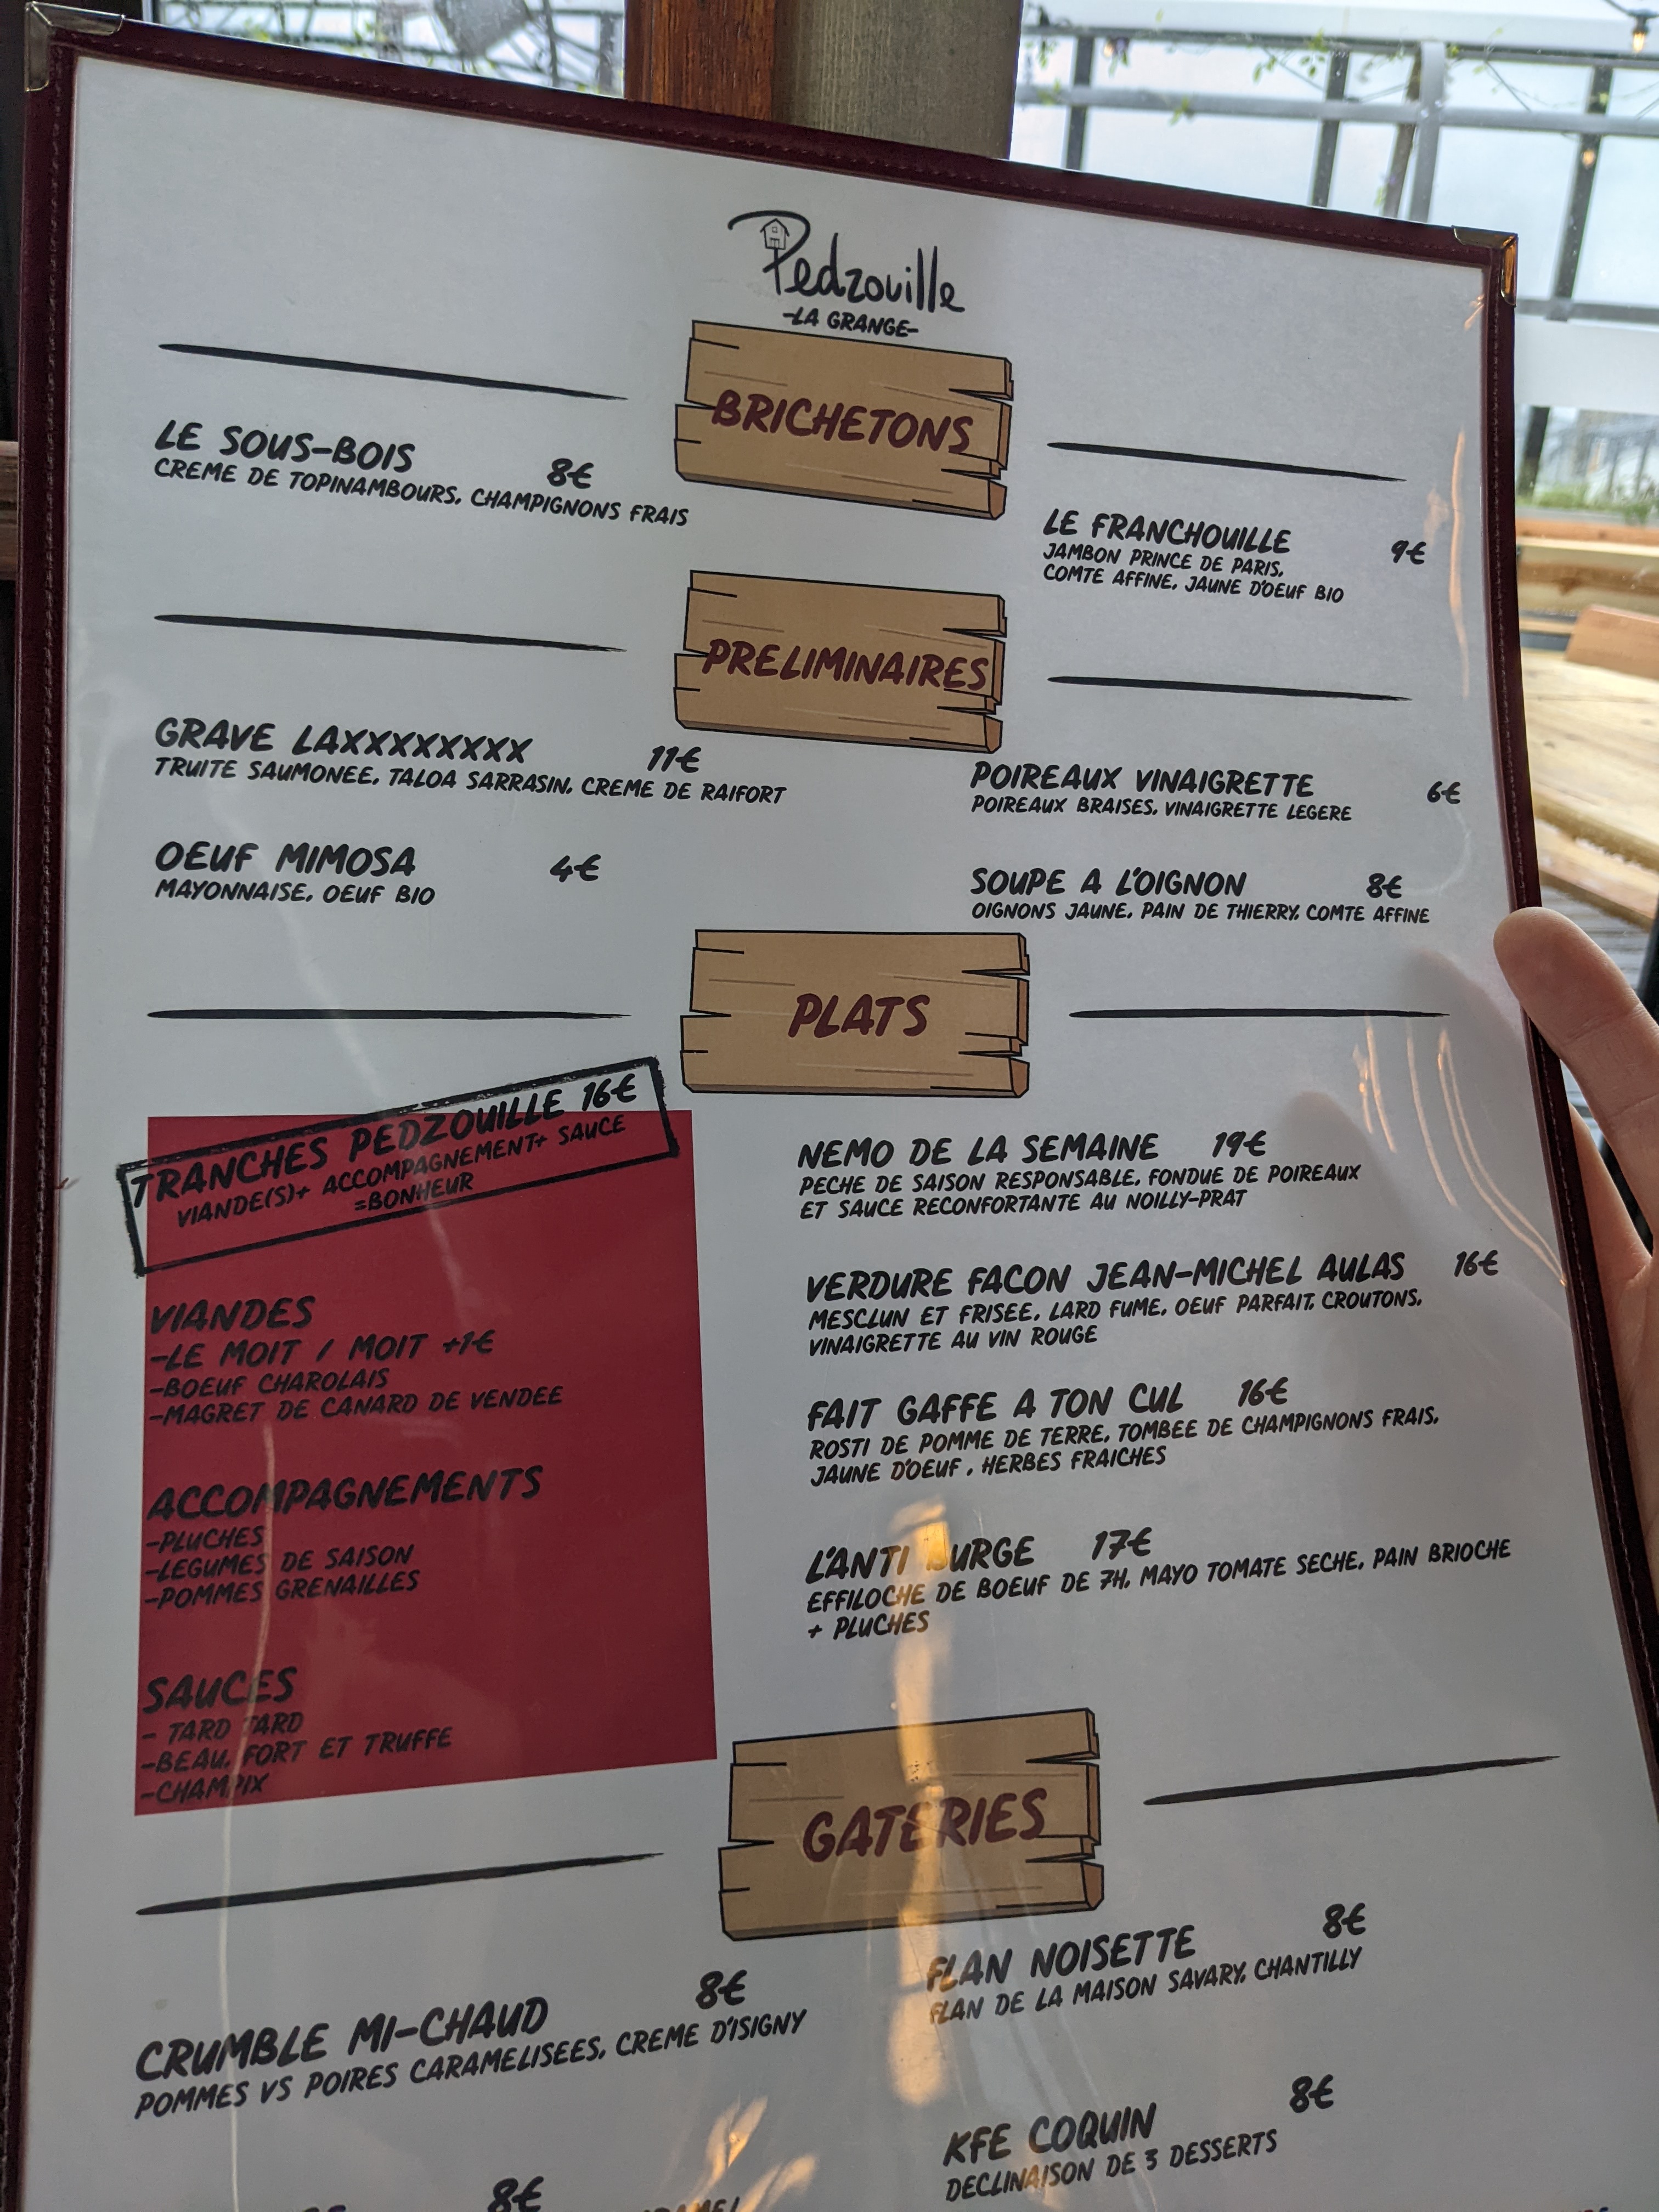 Pedzouille
-LA GRANGE-
BRICHETONS
LE SOUS-BOIS 8€
CREME DE TOPINAMBOURS, CHAMPIGNONS FRAIS
LE FRANCHOUILLE 9€
JAMBON PRINCE DE PARIS,
COMTE AFFINE, JAUNE D'OEUF BIO
PRELIMINAIRES
GRAVE LAXXXXXXXX 11€
TRUITE SAUMONEE, TALOA SARRASIN, CREME DE RAIFORT
POIREAUX VINAIGRETTE 6€
POIREAUX BRAISES, VINAIGRETTE LEGERE
OEUF MIMOSA 4€
MAYONNAISE, OEUF BIO
SOUPE A L'OIGNON 8€
OIGNONS JAUNE, PAIN DE THIERRY, COMTE AFFINE
PLATS
TRANCHES PEDZOUILLE 16€
VIANDE(S)+ ACCOMPAGNEMENT+ SAUCE
=BONHEUR
VIANDES
-LE MOIT / MOIT +1€
-BOEUF CHAROLAIS
-MAGRET DE CANARD DE VENDEE
ACCOMPAGNEMENTS
-PLUCHES
-LEGUMES DE SAISON
-POMMES GRENAILLES
SAUCES
- TARD TARD
-BEAU, FORT ET TRUFFE
-CHAMPIX
NEMO DE LA SEMAINE 19€
PECHE DE SAISON RESPONSABLE, FONDUE DE POIREAUX
ET SAUCE RECONFORTANTE AU NOILLY-PRAT
VERDURE FACON JEAN-MICHEL AULAS 16€
MESCLUN ET FRISEE, LARD FUME, OEUF PARFAIT, CROUTONS,
VINAIGRETTE AU VIN ROUGE
FAIT GAFFE A TON CUL 16€
ROSTI DE POMME DE TERRE, TOMBEE DE CHAMPIGNONS FRAIS,
JAUNE D'OEUF , HERBES FRAICHES
L'ANTI BURGE 17€
EFFILOCHE DE BOEUF DE 7H, MAYO TOMATE SECHE, PAIN BRIOCHE
+ PLUCHES
GATERIES
CRUMBLE MI-CHAUD 8€
POMMES VS POIRES CARAMELISEES, CREME D'ISIGNY
FLAN NOISETTE 8€
FLAN DE LA MAISON SAVARY, CHANTILLY
KFE COQUIN 8€
DECLINAISON DE 3 DESSERTS
8€